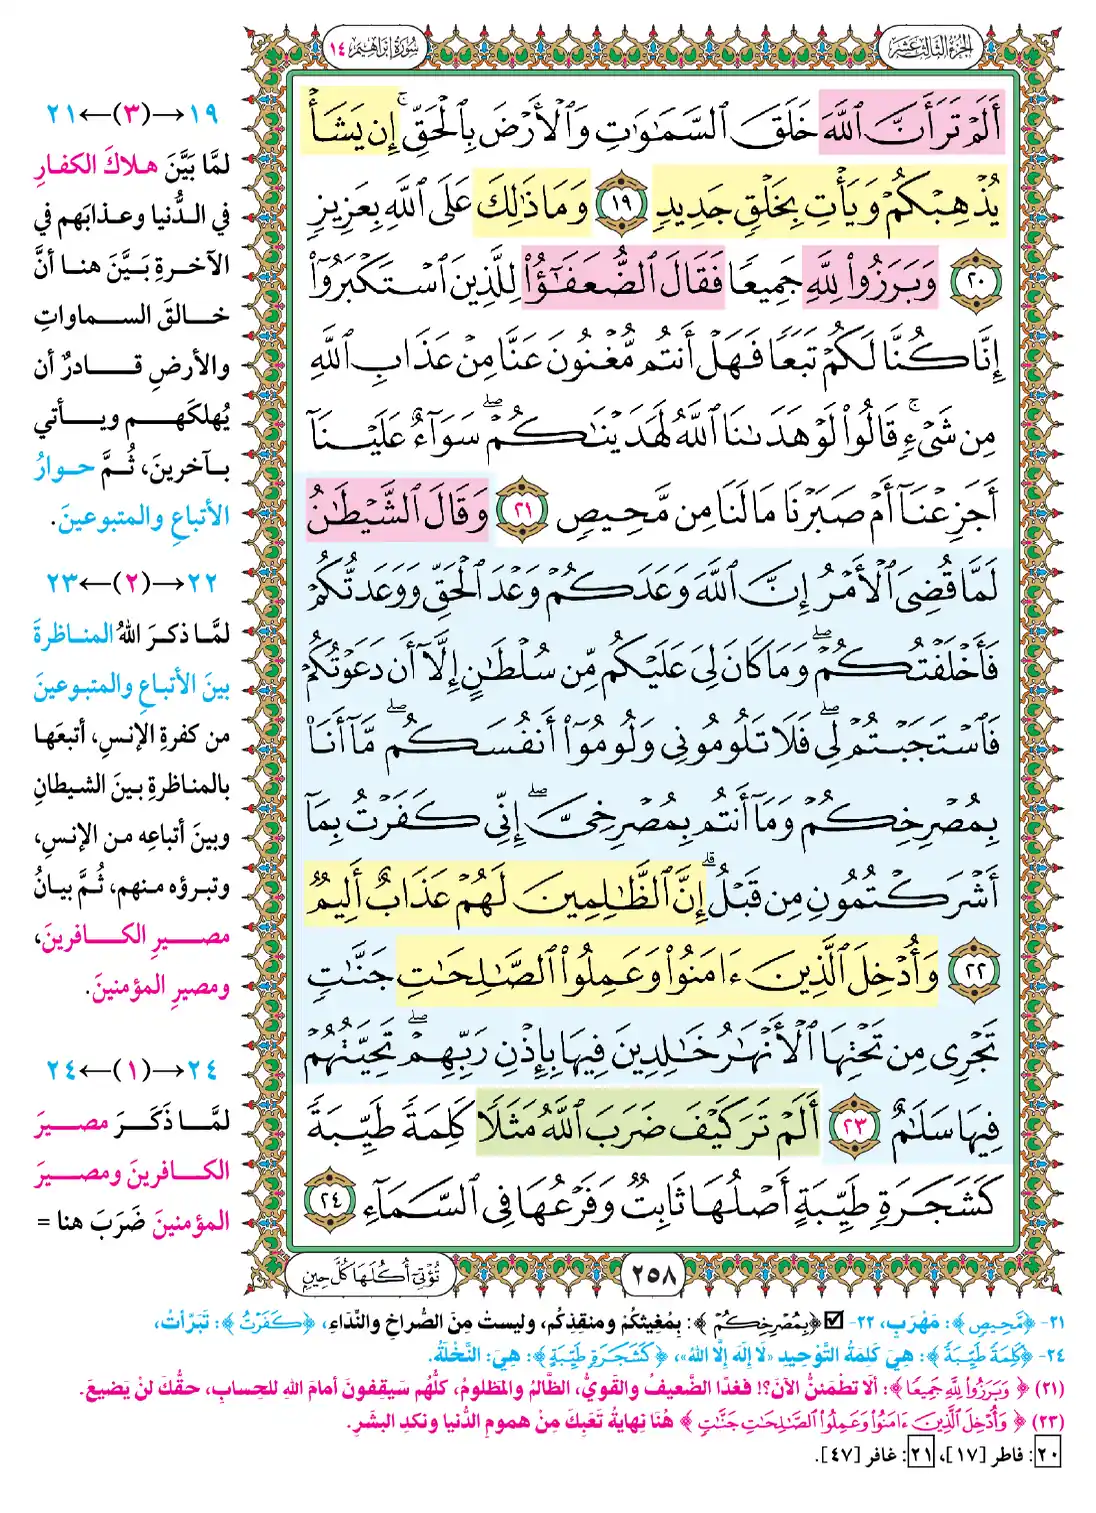 الجزء الثالث عشر
سورة إبراهيم ١٤
أَلَمْ تَرَ أَنَّ ٱللَّهَ خَلَقَ ٱلسَّمَٰوَٰتِ وَٱلْأَرْضَ بِٱلْحَقِّ ۚ إِن يَشَأْ
يُذْهِبْكُمْ وَيَأْتِ بِخَلْقٍ جَدِيدٍ ١٩ وَمَا ذَٰلِكَ عَلَى ٱللَّهِ بِعَزِيزٍ
٢٠ وَبَرَزُوا۟ لِلَّهِ جَمِيعًا فَقَالَ ٱلضُّعَفَٰٓؤُا۟ لِلَّذِينَ ٱسْتَكْبَرُوٓا۟
إِنَّا كُنَّا لَكُمْ تَبَعًا فَهَلْ أَنتُم مُّغْنُونَ عَنَّا مِنْ عَذَابِ ٱللَّهِ
مِن شَىْءٍ ۚ قَالُوا۟ لَوْ هَدَىٰنَا ٱللَّهُ لَهَدَيْنَٰكُمْ ۖ سَوَآءٌ عَلَيْنَآ
أَجَزِعْنَآ أَمْ صَبَرْنَا مَا لَنَا مِن مَّحِيصٍ ٢١ وَقَالَ ٱلشَّيْطَٰنُ
لَمَّا قُضِىَ ٱلْأَمْرُ إِنَّ ٱللَّهَ وَعَدَكُمْ وَعْدَ ٱلْحَقِّ وَوَعَدتُّكُمْ
فَأَخْلَفْتُكُمْ ۖ وَمَا كَانَ لِىَ عَلَيْكُم مِّن سُلْطَٰنٍ إِلَّآ أَن دَعَوْتُكُمْ
فَٱسْتَجَبْتُمْ لِى ۖ فَلَا تَلُومُونِى وَلُومُوٓا۟ أَنفُسَكُم ۖ مَّآ أَنَا۠
بِمُصْرِخِكُمْ وَمَآ أَنتُم بِمُصْرِخِىَّ ۖ إِنِّى كَفَرْتُ بِمَآ
أَشْرَكْتُمُونِ مِن قَبْلُ ۗ إِنَّ ٱلظَّٰلِمِينَ لَهُمْ عَذَابٌ أَلِيمٌ
٢٢ وَأُدْخِلَ ٱلَّذِينَ ءَامَنُوا۟ وَعَمِلُوا۟ ٱلصَّٰلِحَٰتِ جَنَّٰتٍ
تَجْرِى مِن تَحْتِهَا ٱلْأَنْهَٰرُ خَٰلِدِينَ فِيهَا بِإِذْنِ رَبِّهِمْ ۖ تَحِيَّتُهُمْ
فِيهَا سَلَٰمٌ ٢٣ أَلَمْ تَرَ كَيْفَ ضَرَبَ ٱللَّهُ مَثَلًا كَلِمَةً طَيِّبَةً
كَشَجَرَةٍ طَيِّبَةٍ أَصْلُهَا ثَابِتٌ وَفَرْعُهَا فِى ٱلسَّمَآءِ ٢٤
٢٥٨
تُؤْتِىٓ أُكُلَهَا كُلَّ حِينٍ
١٩→(٣)←٢١
لمَّا بَيَّنَ هلاكَ الكفارِ
في الدُّنيا وعذابَهم في
الآخرةِ بَيَّنَ هنا أنَّ
خالقَ السماواتِ
والأرضِ قادرٌ أن
يُهلكَهم ويأتي
بآخرينَ، ثُمَّ حوارُ
الأتباعِ والمتبوعينَ.
٢٢→(٢)←٢٣
لمَّا ذكرَ اللهُ المناظرةَ
بينَ الأتباعِ والمتبوعينَ
من كفرةِ الإنسِ، أتبعَها
بالمناظرةِ بينَ الشيطانِ
وبينَ أتباعِه من الإنسِ،
وتبرؤه منهم، ثُمَّ بيانُ
مصيرِ الكافرينَ،
ومصيرِ المؤمنينَ.
٢٤→(١)←٢٤
لمَّا ذَكَرَ مصيرَ
الكافرينَ ومصيرَ
المؤمنينَ ضَرَبَ هنا =
٢١- ﴿مَّحِيصٍ﴾: مَهْرَبٍ، ٢٢- ☑ ﴿بِمُصْرِخِكُمْ﴾: بِمُغِيثِكُمْ ومنقِذِكُم، وليستْ مِنَ الصُّراخِ والنِّدَاءِ، ﴿كَفَرْتُ﴾: تَبَرَّأتُ،
٢٤- ﴿كَلِمَةً طَيِّبَةً﴾: هِيَ كَلِمَةُ التَّوْحِيدِ «لَا إِلَهَ إِلَّا اللهُ»، ﴿كَشَجَرَةٍ طَيِّبَةٍ﴾: هِيَ: النَّخْلَةُ.
(٢١) ﴿وَبَرَزُوا۟ لِلَّهِ جَمِيعًا﴾: ألا تطمَئنُّ الآنَ؟! فغدًا الضَّعيفُ والقويُّ، الظَّالمُ والمَظلومُ، كلُّهُم سَيقِفونَ أمامَ اللهِ للحسابِ، حقُّكَ لنْ يَضيعَ.
(٢٣) ﴿وَأُدْخِلَ ٱلَّذِينَ ءَامَنُوا۟ وَعَمِلُوا۟ ٱلصَّٰلِحَٰتِ جَنَّٰتٍ﴾ هُنَا نِهايةُ تَعَبِكَ مِنْ همومِ الدُّنيا ونكدِ البشَرِ.
٢٠: فاطر [١٧]، ٢١: غافر [٤٧].